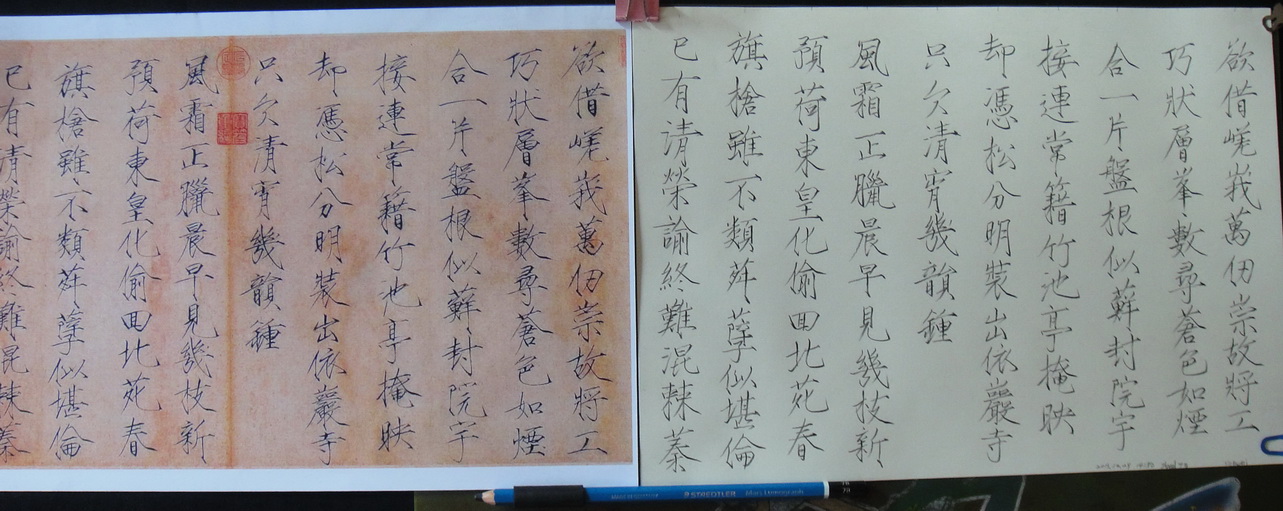 欲借嵯峨萬仞崇故將工
巧狀層峯數尋蒼色如煙
合一片盤根似蘚封院宇
接連常藉竹池亭掩映
却憑松分明裝出依巖寺
只欠清宵幾韻鍾
風霜正臘晨早見幾枝新
預荷東皇化偷囬北苑春
旗槍雖不類荈孽似堪倫
已有清榮諭終難混棘蓁
欲借嵯峨萬仞崇故將工
巧狀層峯數尋蒼色如煙
合一片盤根似蘚封院宇
接連常籍竹池亭掩映
却憑松分明裝出依巖寺
只欠清宵幾韻鍾
風霜正臘晨早見幾枝新
預荷東皇化偷囬北苑春
旗槍雖不類荈孽似堪倫
已有清榮諭終難混棘蓁
STAEDTLER Mars Lumograph